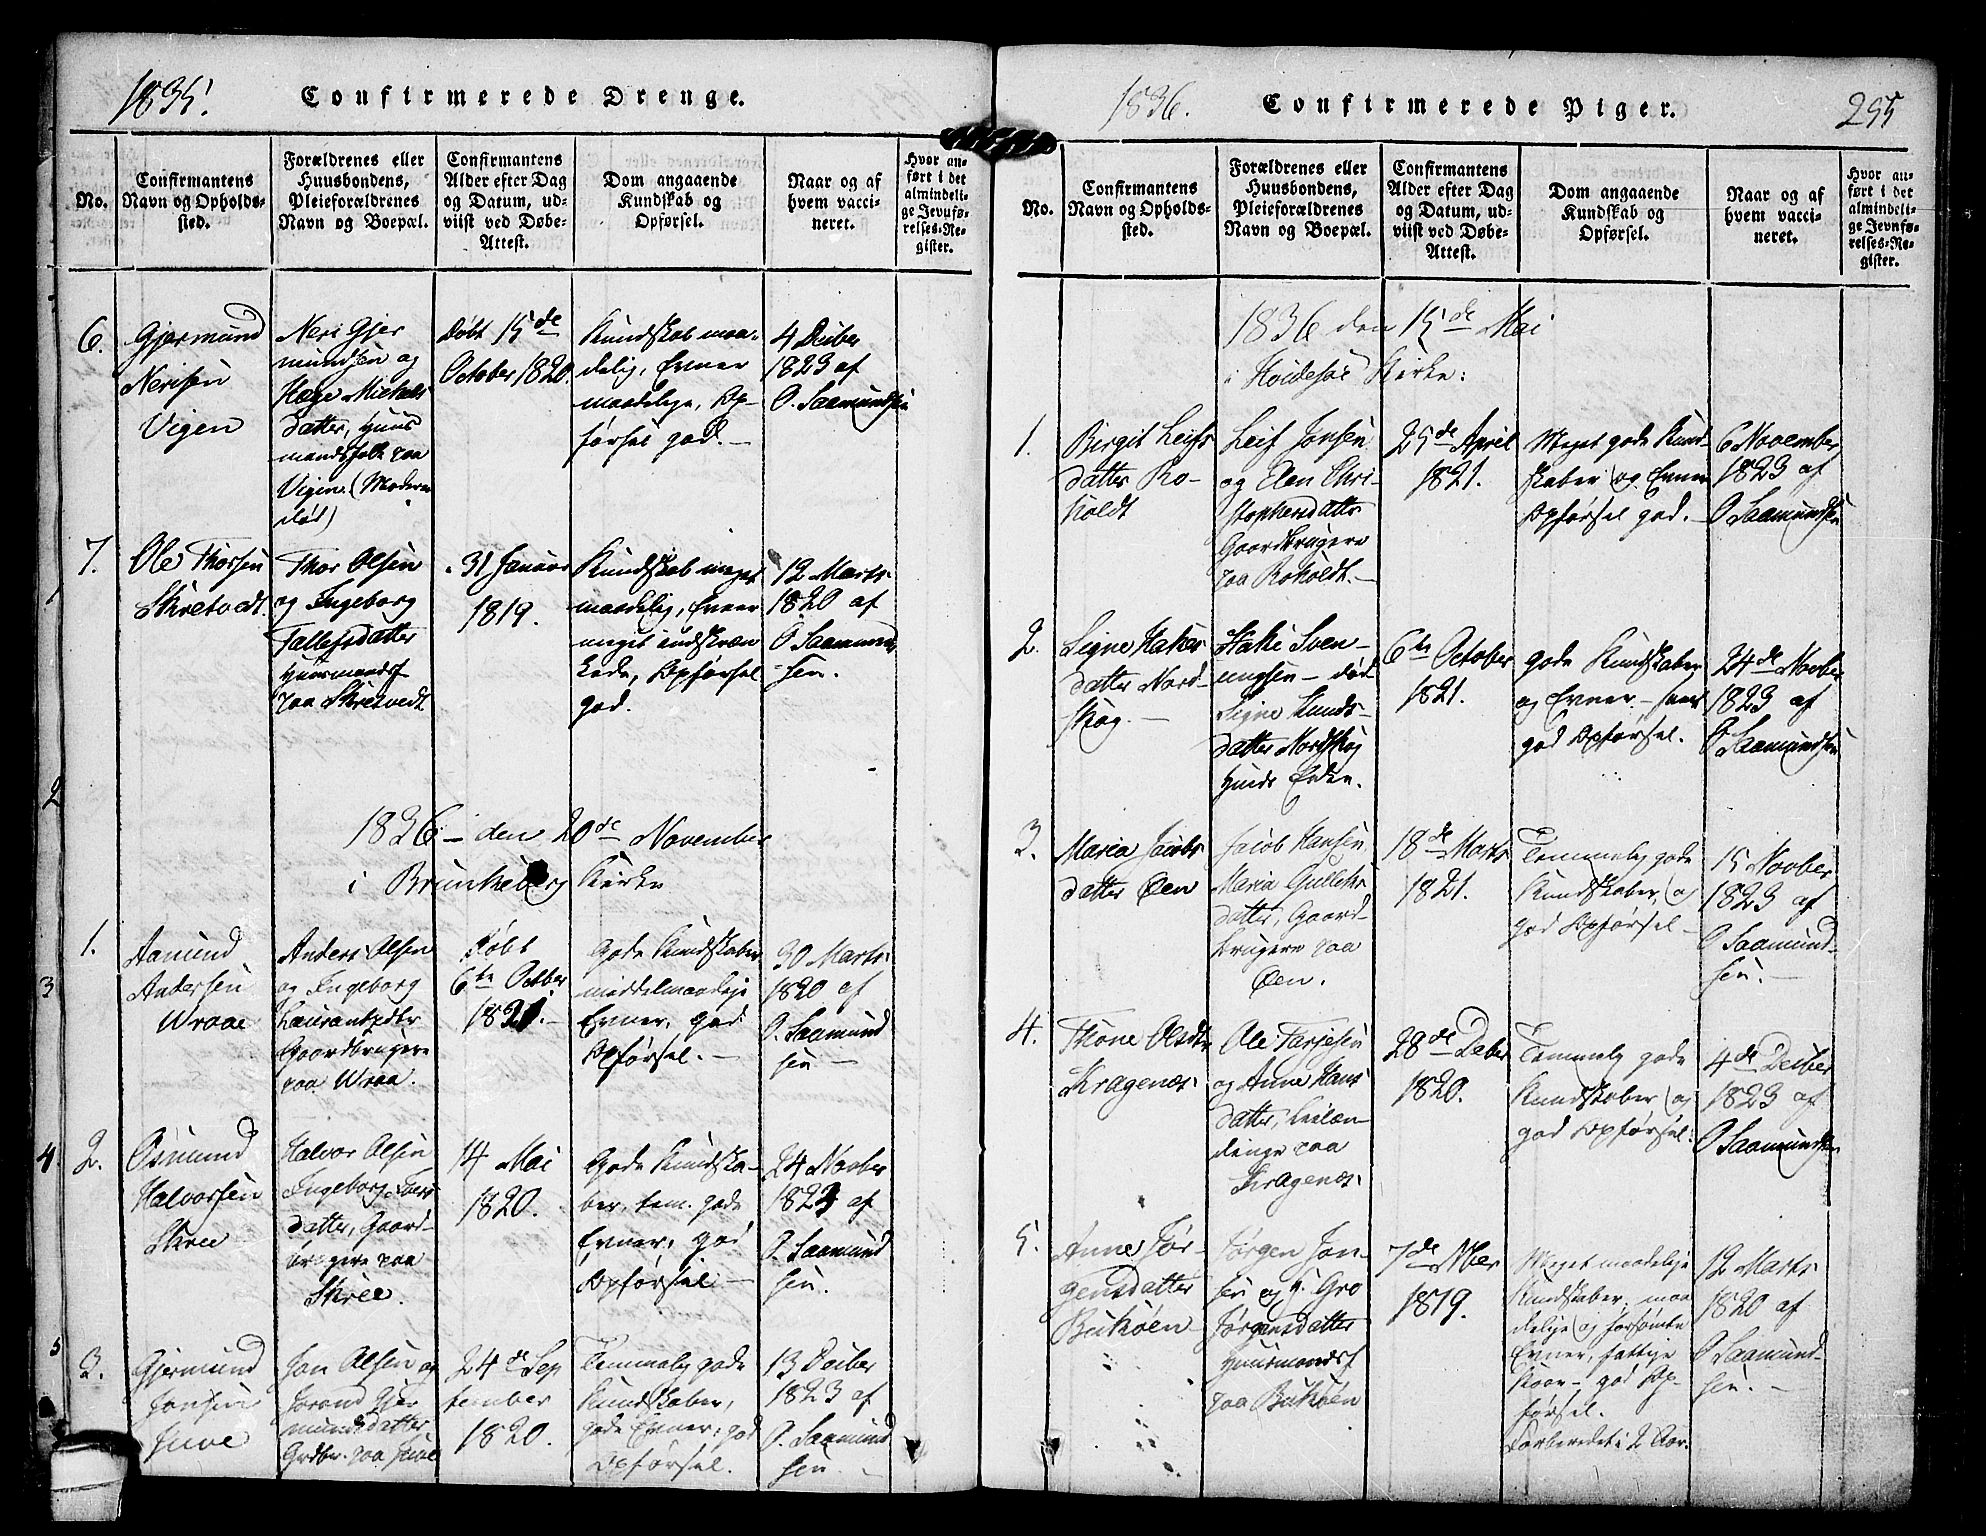 1835.
Confirmerede Drenge.
No.
Confirmantens
Navn og Opholds-
sted.
Forældrenes eller
Huusbondens,
Pleieforældrenes
Navn og Boepæl.
Confirmantens
Alder efter Dag
og Datum, ud-
viist ved Døbe-
Attest.
Dom angaaende
Kundskab og
Opførsel.
Naar og af
hvem vacci-
neret.
Hvor an-
ført i det
almindeli-
ge Jevnfø-
relses-Re-
gister.
6.
Gjermund
Nerisen
Vigen
Neri Gjer
mundsen og
Hæge Mickels
datter, Huus
mandsfolk paa
Vigen. (Moderen
død)
Døbt 15de
October 1820.
Kundskab maa-
delig, Evner
maadelige, Op-
førsel god.-
4 Deciber
1823 af
O. Saamundsen
7.
Ole Thorsen
Skretvedt.
Thor Olsen
og Ingeborg
Tallefsdatter
Huusmandsf
paa Skretvedt
31 Januar
1819.
Kundskab meget
maadelig, Evner
meget indskræn
kede, Opførsel
god.
12 Marts
1820 af
O Saamund
-sen.
1836 - den 20de November
i Brunkeberg Kirke
1.
Aamund
Andersen
Wraae
Anders Olsen
og Ingeborg
Laurantzdtr
Gaardbrugere
paa Wraa.
Døbt
6te Octber
1821.-
Gode Kundskaber
middelmaadige
Evner, god
Opførsel.-
30 Marts
1820 af
O. Saamund
sen-
2.
Osmund
Halvorsen
Skree
Halvor Olsen
Ingeborg Ivers
datter, Gaard-
brugere paa
Skree.
14 Mai
1820.
Gode Kundska-
ber, tem. gode
Evner, god
Opførsel-
24 Novber
1823 af
O. Saamund
sen.
3.
Gjermund
Jonsen
Juve
Jon Olsen og
Jorand Gjer
mundsdatter
Grdbr. paa Juve
24de Sep
tember
1820.
Temmelig gode
Kundskaber,
gode Evner, god
Opførsel.
13 Deciber
1823 af
O. Saamund
sen.-
1836.
Confirmerede Piger.
255
No.
Confirmantens
Navn og Opholds-
sted.
Forældrenes eller
Huusbondens,
Pleieforældrenes
Navn og Boepæl.
Confirmantens
Alder efter Dag
og Datum, ud-
viist ved Døbe-
Attest.
Dom angaaende
Kundskab og
Opførsel.
Naar og af
hvem vacci-
neret.
Hvor an-
ført i det
almindeli-
ge Jevnfø-
relses-Re-
gister.
1836 den 15de Mai
i Hvideseie Kirke:
1.
Birgit Leifs
datter Ro-
holdt
Leif Jonsen
og Elen Chri-
stophersdatter
Gaardbrugere
paa Roholdt.-
25de April
1821.
Meget gode Kund-
skaber og Evner
Opførsel god.-
6 November
1823 af
O Saamundsen
2.
Signe Hakes
datter Nord-
skog.-
Hake Sven-
ungsen - død
Signe Lunds-
datter Nordskog
Huuds Enke.
6te October
1821.
gode Kundskaber
og Evner - samt
god Opførsel.
24de Novber
1823 af
O Saamundsen
3.
Maria Jacobs
datter Øen
Jacob Hansen
Maria Gulleks
datter, Gaard-
brugere paa
Øen.
18de Marts
1821.
Temmelig gode
Kundskaber, og
god Opførsel-
15 Novber
1823 af
O Saamund-
sen.-
4.
Thone Olsdtr
Kragenæs.
Ole Tarjesen
og Anne Hans
datter, Leilæn
dinge paa
Kragenæs.
28de Decber
1820.
Temmelig gode
Kundskaber og
god Opførsel.
4de Deciber
1823 af
O Saamundsen
5.
Anne Jør-
gensdatter
Bukøen
Jørgen Jon-
sen og H. Gro
Jørgensdatter
Huusmandsf
paa Bukøen
7de Nber
1819.
Meget maadelige
Kundskaber, maa
delige og forsømte
Evner, fattige
Kaar - god Op-
førsel.
Forberedet i 2 Aar.
12 Marts
1820 af
O Saamund-
sen.-